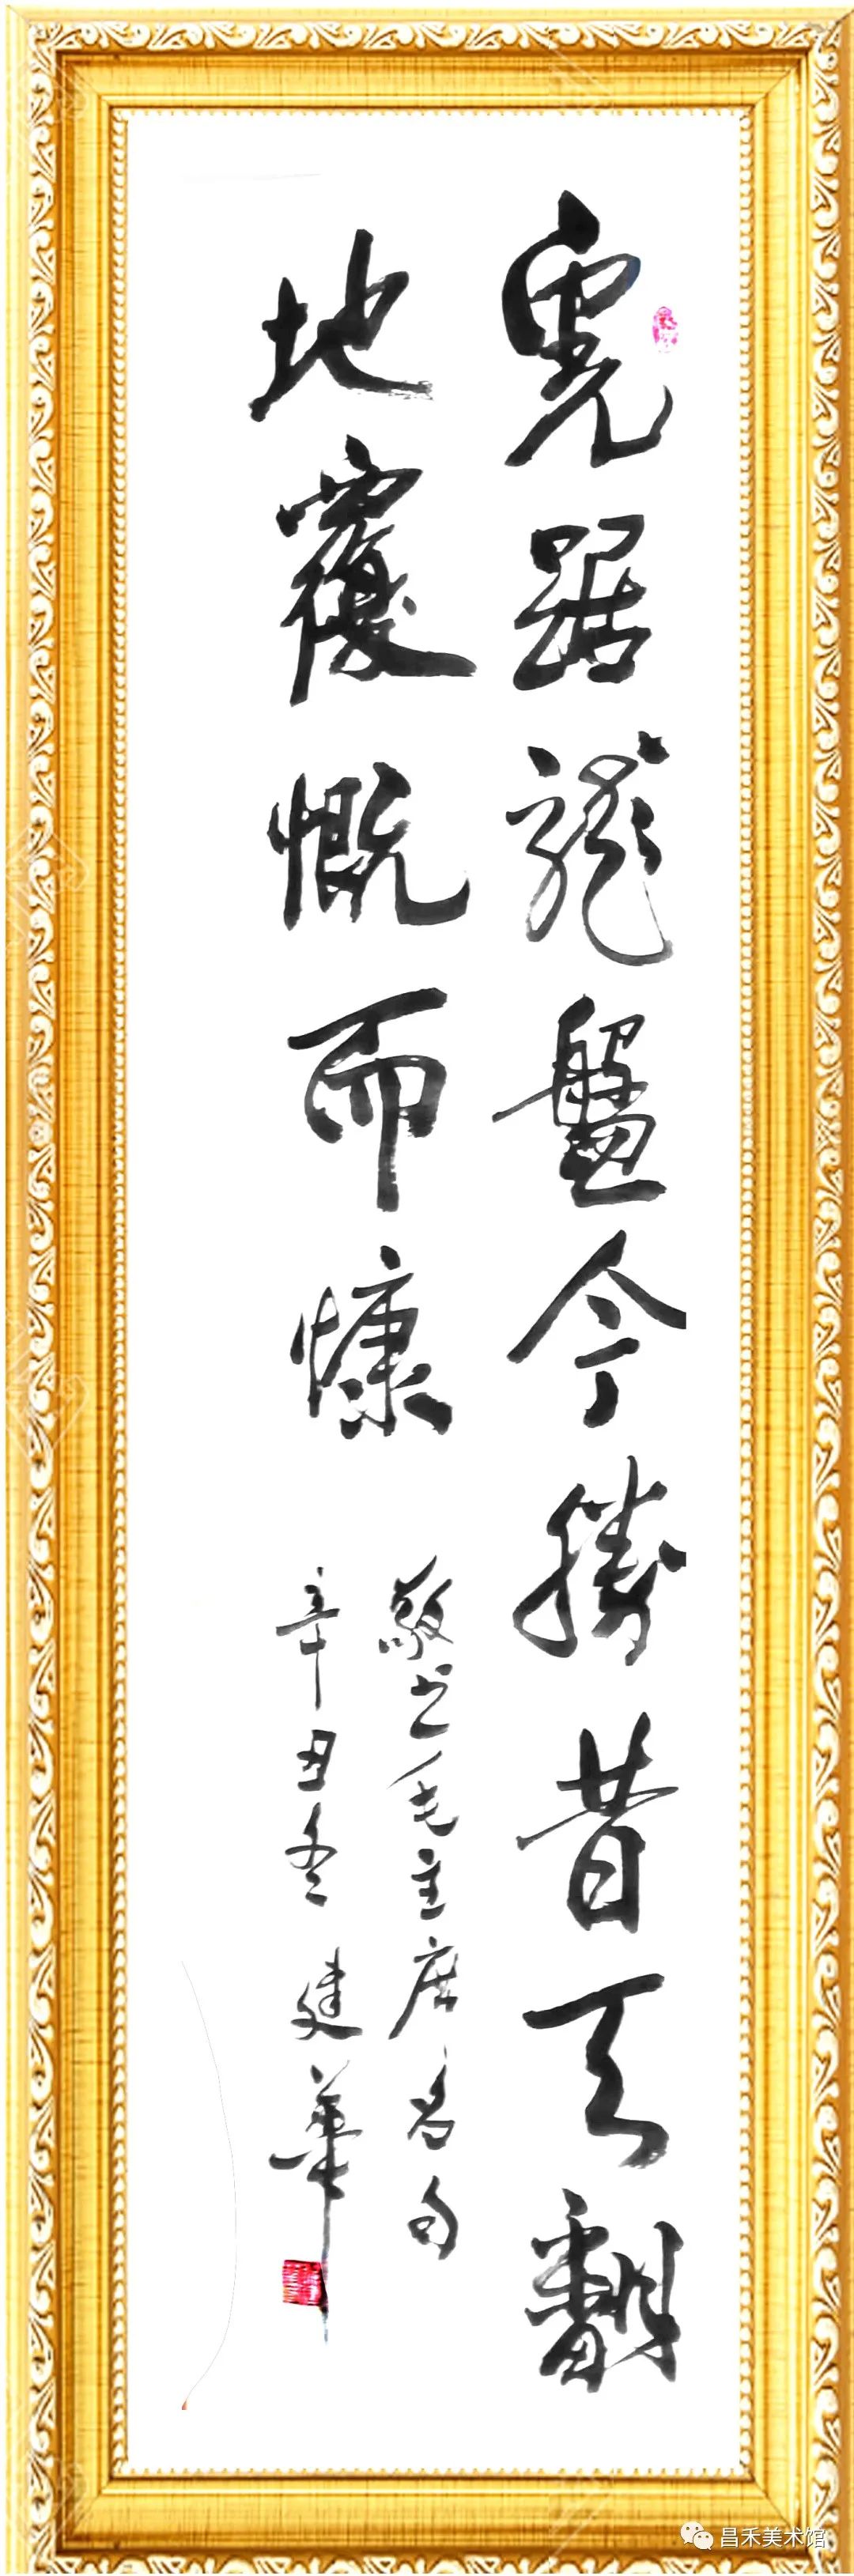 虎踞龍盤今勝昔天翻
地覆慨而慷
敬书毛主席名句
辛丑冬 建華
昌禾美术馆